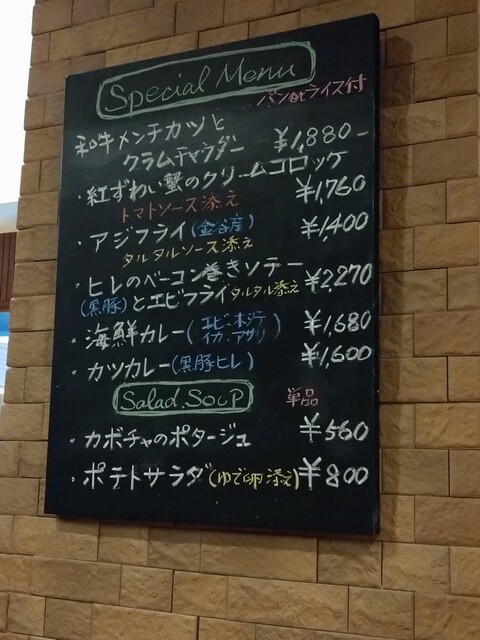 Special Menu
パンorライス付
和牛メンチカツと
クラムチャウダー ¥1,880-
・紅ずわい蟹のクリームコロッケ
トマトソース添え ¥1,760
・アジフライ(金谷産) ¥1,400
タルタルソース添え
・ヒレのベーコン巻きソテー
(黒豚)とエビフライタルタル添え ¥2,270
・海鮮カレー(エビ・ホタテ
イカ、アサリ) ¥1,680
・カツカレー(黒豚ヒレ) ¥1,600
Salad.SOUP 単品
・カボチャのポタージュ ¥560
・ポテトサラダ(ゆで卵添え) ¥800